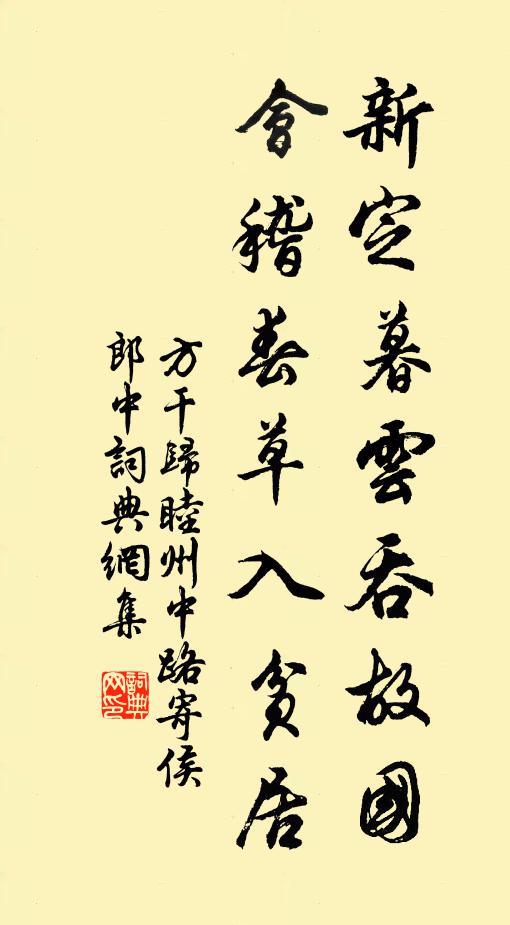 新定暮雲吞故國
會稽春草入貧居
方干歸睦州中路寄侯
郎中詞典網集
詞典
网印